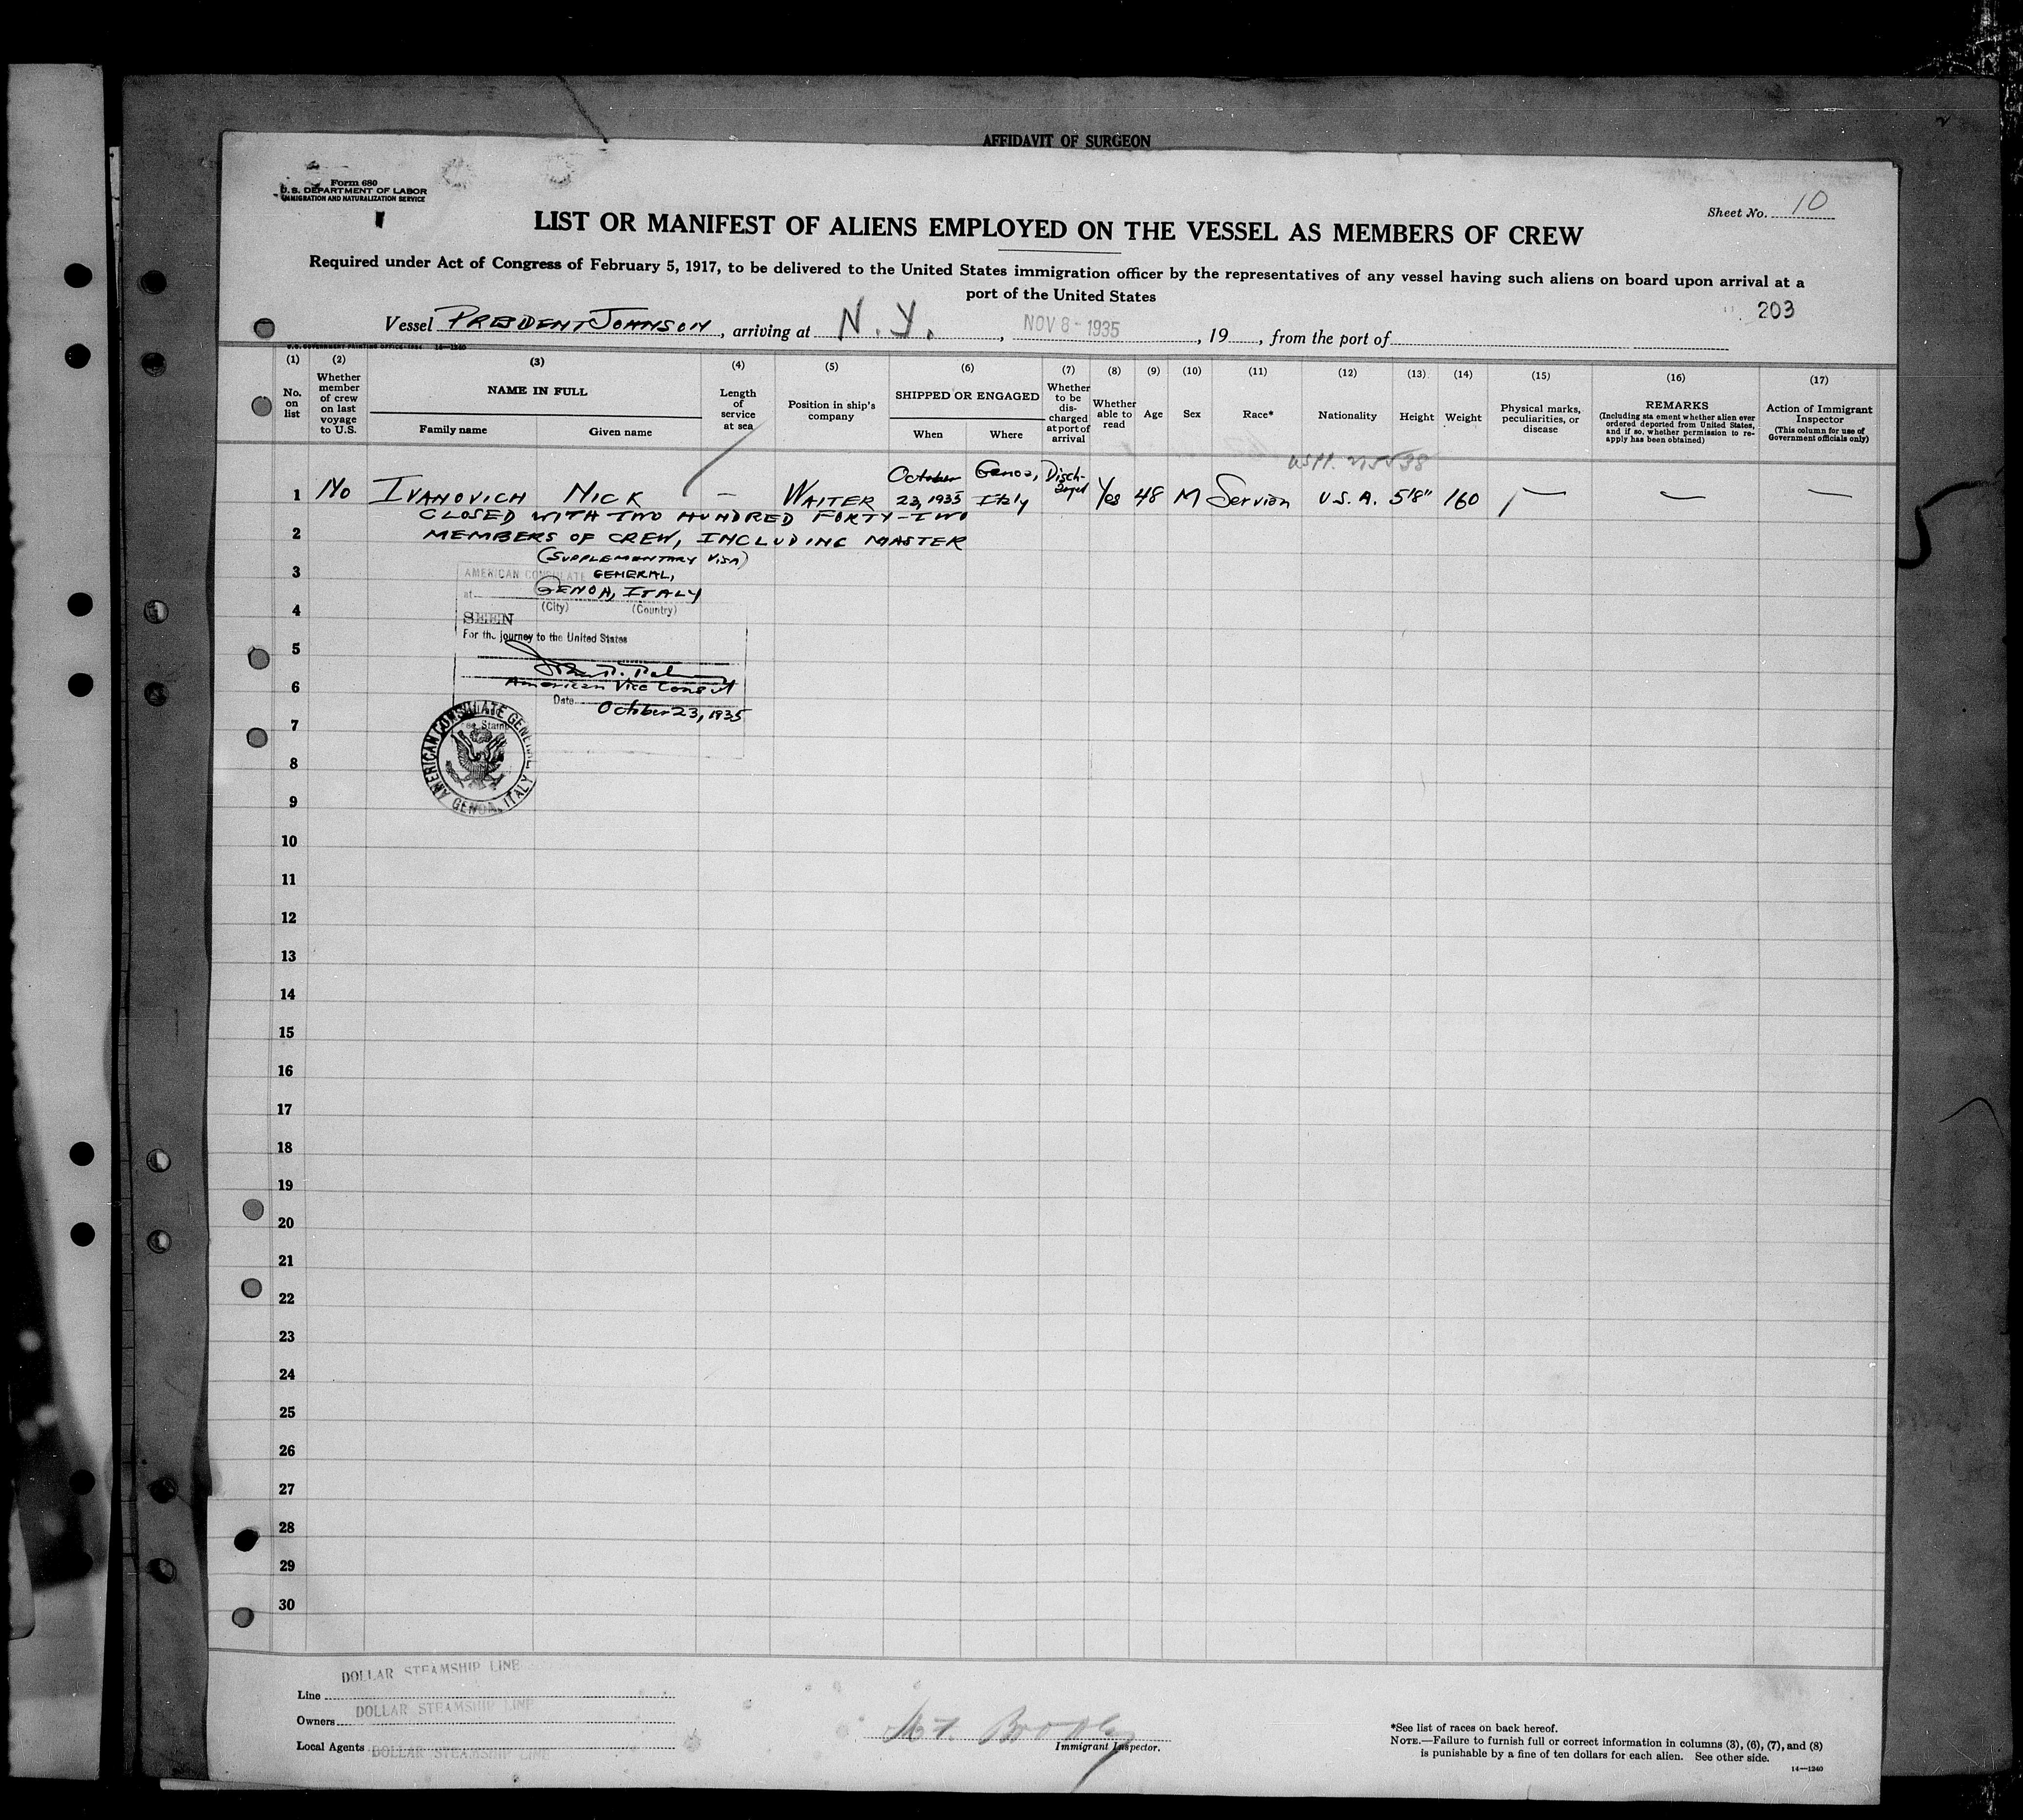 AFFIDAVIT OF SURGEON
Form 680
U.S. DEPARTMENT OF LABOR
IMMIGRATION AND NATURALIZATION SERVICE
Sheet No. 10
LIST OR MANIFEST OF ALIENS EMPLOYED ON THE VESSEL AS MEMBERS OF CREW
Required under Act of Congress of February 5, 1917, to be delivered to the United States immigration officer by the representatives of any vessel having such aliens on board upon arrival at a
port of the United States
203
Vessel PRESIDENT JOHNSON, arriving at N.Y., NOV 8 - 1935, 19, from the port of
U.S. GOVERNMENT PRINTING OFFICE: 1934 14—1240
(1) (2) (3) (4) (5) (6) (7) (8) (9) (10) (11) (12) (13) (14) (15) (16) (17)
No. on list
Whether member of crew on last voyage to U.S.
NAME IN FULL
Family name
Given name
Length of service at sea
Position in ship's company
SHIPPED OR ENGAGED
When
Where
Whether to be dis-charged at port of arrival
Whether able to read
Age
Sex
Race*
Nationality
Height
Weight
Physical marks, peculiarities, or disease
REMARKS
(Including sta ement whether alien ever ordered deported from United States, and if so, whether permission to re-apply has been obtained)
Action of Immigrant Inspector
(This column for use of Government officials only)
1 No IVANOVICH NICK — WAITER October 23, 1935 Genoa, Italy Disch-arged Yes 48 M Servian U.S.A. 5'8" 160 — — —
CLOSED WITH TWO HUNDRED FORTY-TWO
2 MEMBERS OF CREW, INCLUDING MASTER
(SUPPLEMENTARY VISA)
3 AMERICAN CONSULATE GENERAL,
at GENOA, ITALY
4 (City) (Country)
SEEN
For the journey to the United States
5
6 American Vice Consul
Date October 23, 1935
7
AMERICAN CONSULATE GENERAL
GENOA, ITALY
8
9
10
11
12
13
14
15
16
17
18
19
20
21
22
23
24
25
26
27
28
29
30
Line DOLLAR STEAMSHIP LINE
Owners DOLLAR STEAMSHIP LINE
Local Agents DOLLAR STEAMSHIP LINE
Immigrant Inspector.
*See list of races on back hereof.
NOTE.—Failure to furnish full or correct information in columns (3), (6), (7), and (8)
is punishable by a fine of ten dollars for each alien. See other side.
14—1240